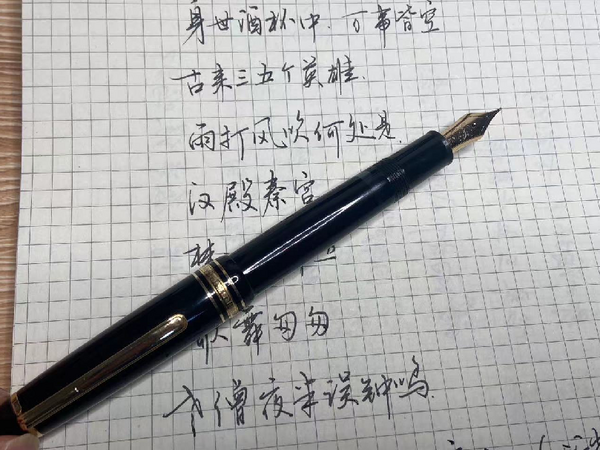 身世酒杯中. 万事皆空
古来三五个英雄.
雨打风吹何处是.
汉殿秦宫
舞匆匆
老僧夜半误钟鸣.